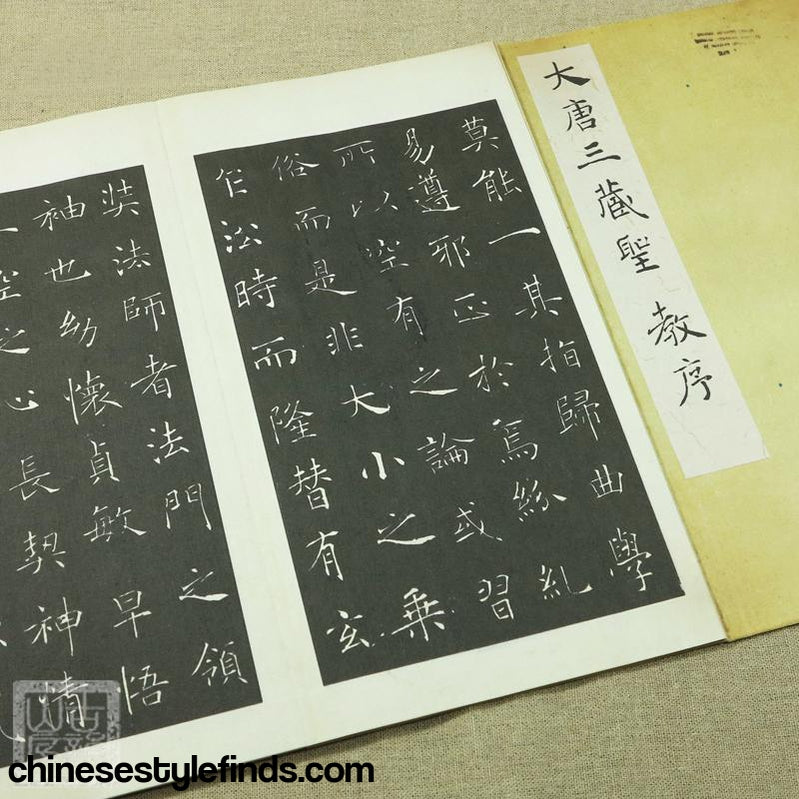 大唐三藏聖教序
莫能一其指歸曲學
易遵邪正於焉紛糺
所以空有之論或習
俗而是非大小之乘
乍沿時而隆替有玄
奘法師者法門之領
袖也幼懷貞敏早悟
空之心長契神情
chinesestylefinds.com